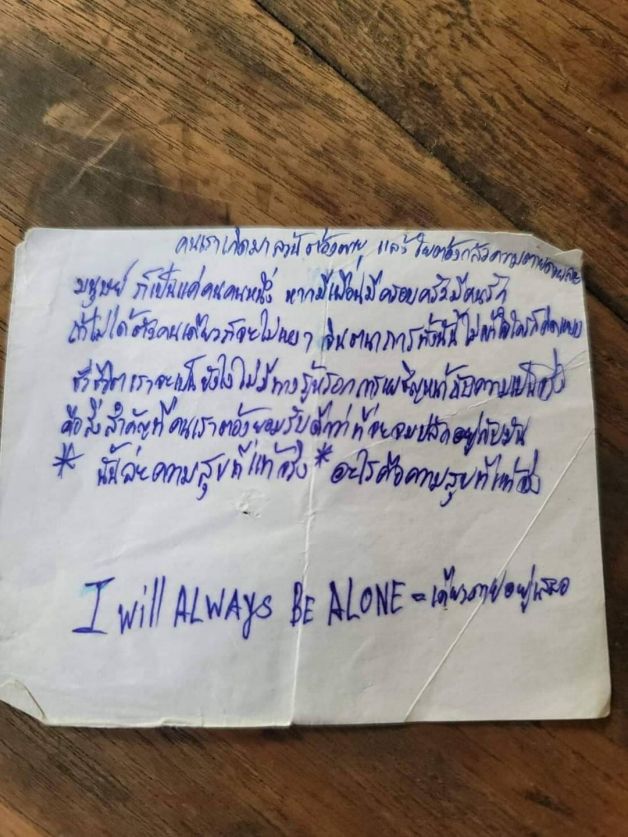 คนเราเกิดมา ต้องตาย แล้วใยต้องกลัวความตาย
มนุษย์ ก็เป็นแค่คนคนหนึ่ง หากมีเพื่อนมีครอบครัวมีคนรัก
ถ้าไม่ได้ตัวคนเดียวก็คงไม่เหงา จินตนาการทั้งนั้น ไม่
ชีวิตเราจะเป็นยังไง ไม่มีทางรู้หรอก การเผชิญหน้ากับความเป็นจริง
คือสิ่งสำคัญที่คนเราต้องยอมรับ ดีกว่าที่จะจมปลักอยู่กับมัน
* นั้นล่ะความสุขที่แท้จริง * อะไรคือความสุขที่แท้จริง
I will ALWAYS BE ALONE = เดียวดายอยู่เสมอ